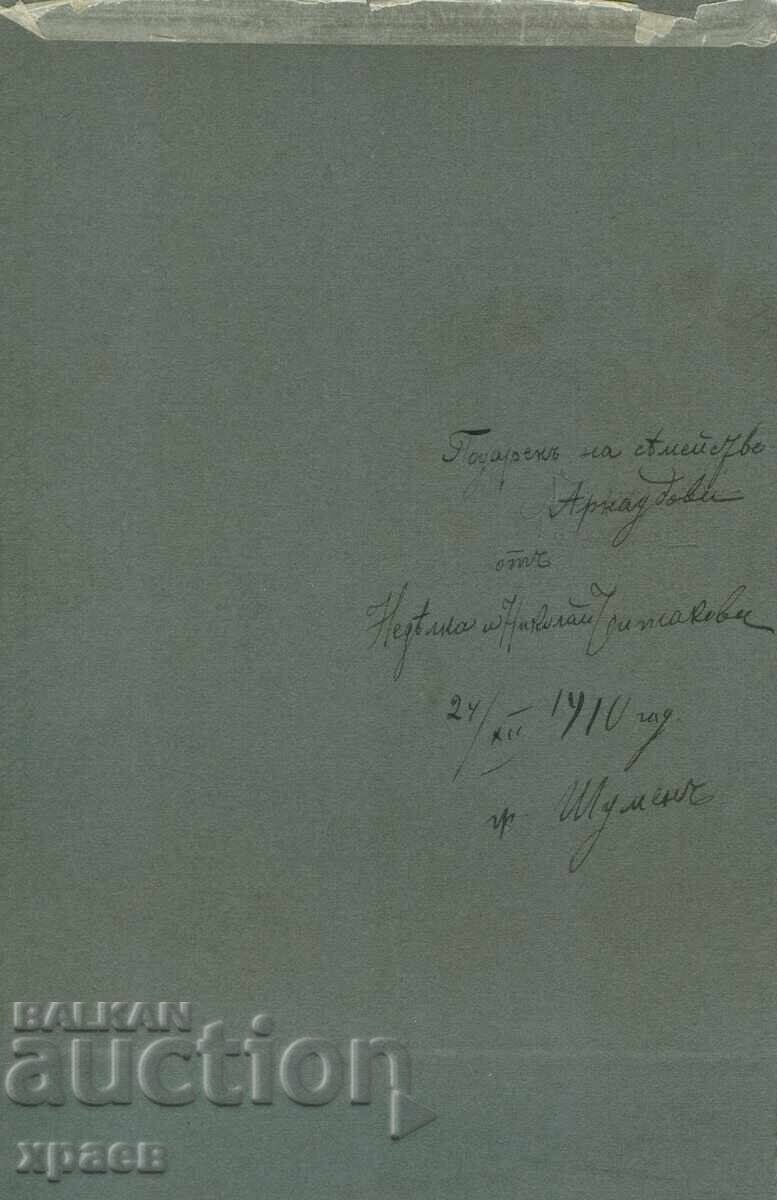 Подарѣкъ на сѣмейство
Арнаудови
отъ
Недѣлка и Николай
24/XII 1910 год.
гр. Шуменъ
BALKAN
auction
храев